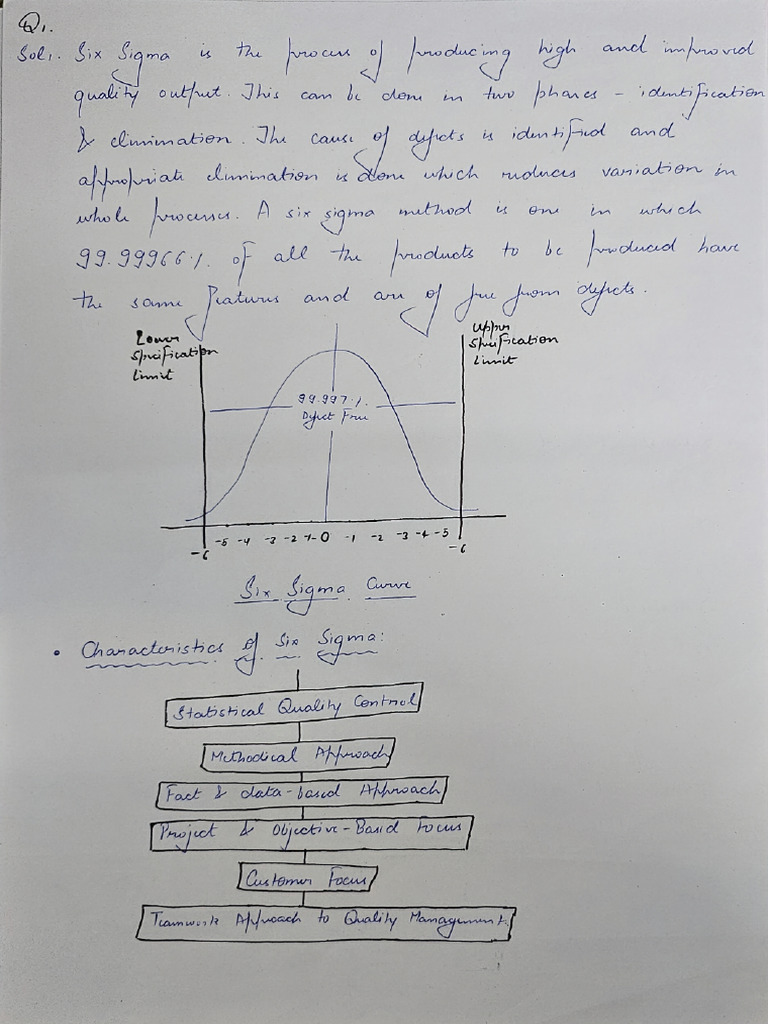 Q1.
Sol1. Six Sigma is the process of producing high and improved
quality output. This can be done in two phases - identification
& elimination. The cause of defects is identified and
appropriate elimination is done which reduces variation in
whole processes. A six sigma method is one in which
99.99966% of all the products to be produced have
the same features and are of free from defects.
Lower
Specification
Limit
Upper
Specification
Limit
99.997%
Defect Free
-6 -5 -4 -3 -2 -1 0 -1 -2 -3 -4 -5 -6
Six Sigma Curve
• Characteristics of Six Sigma:
Statistical Quality Control
Methodical Approach
Fact & data-based Approach
Project & Objective-Based Focus
Customer Focus
Teamwork Approach to Quality Management.